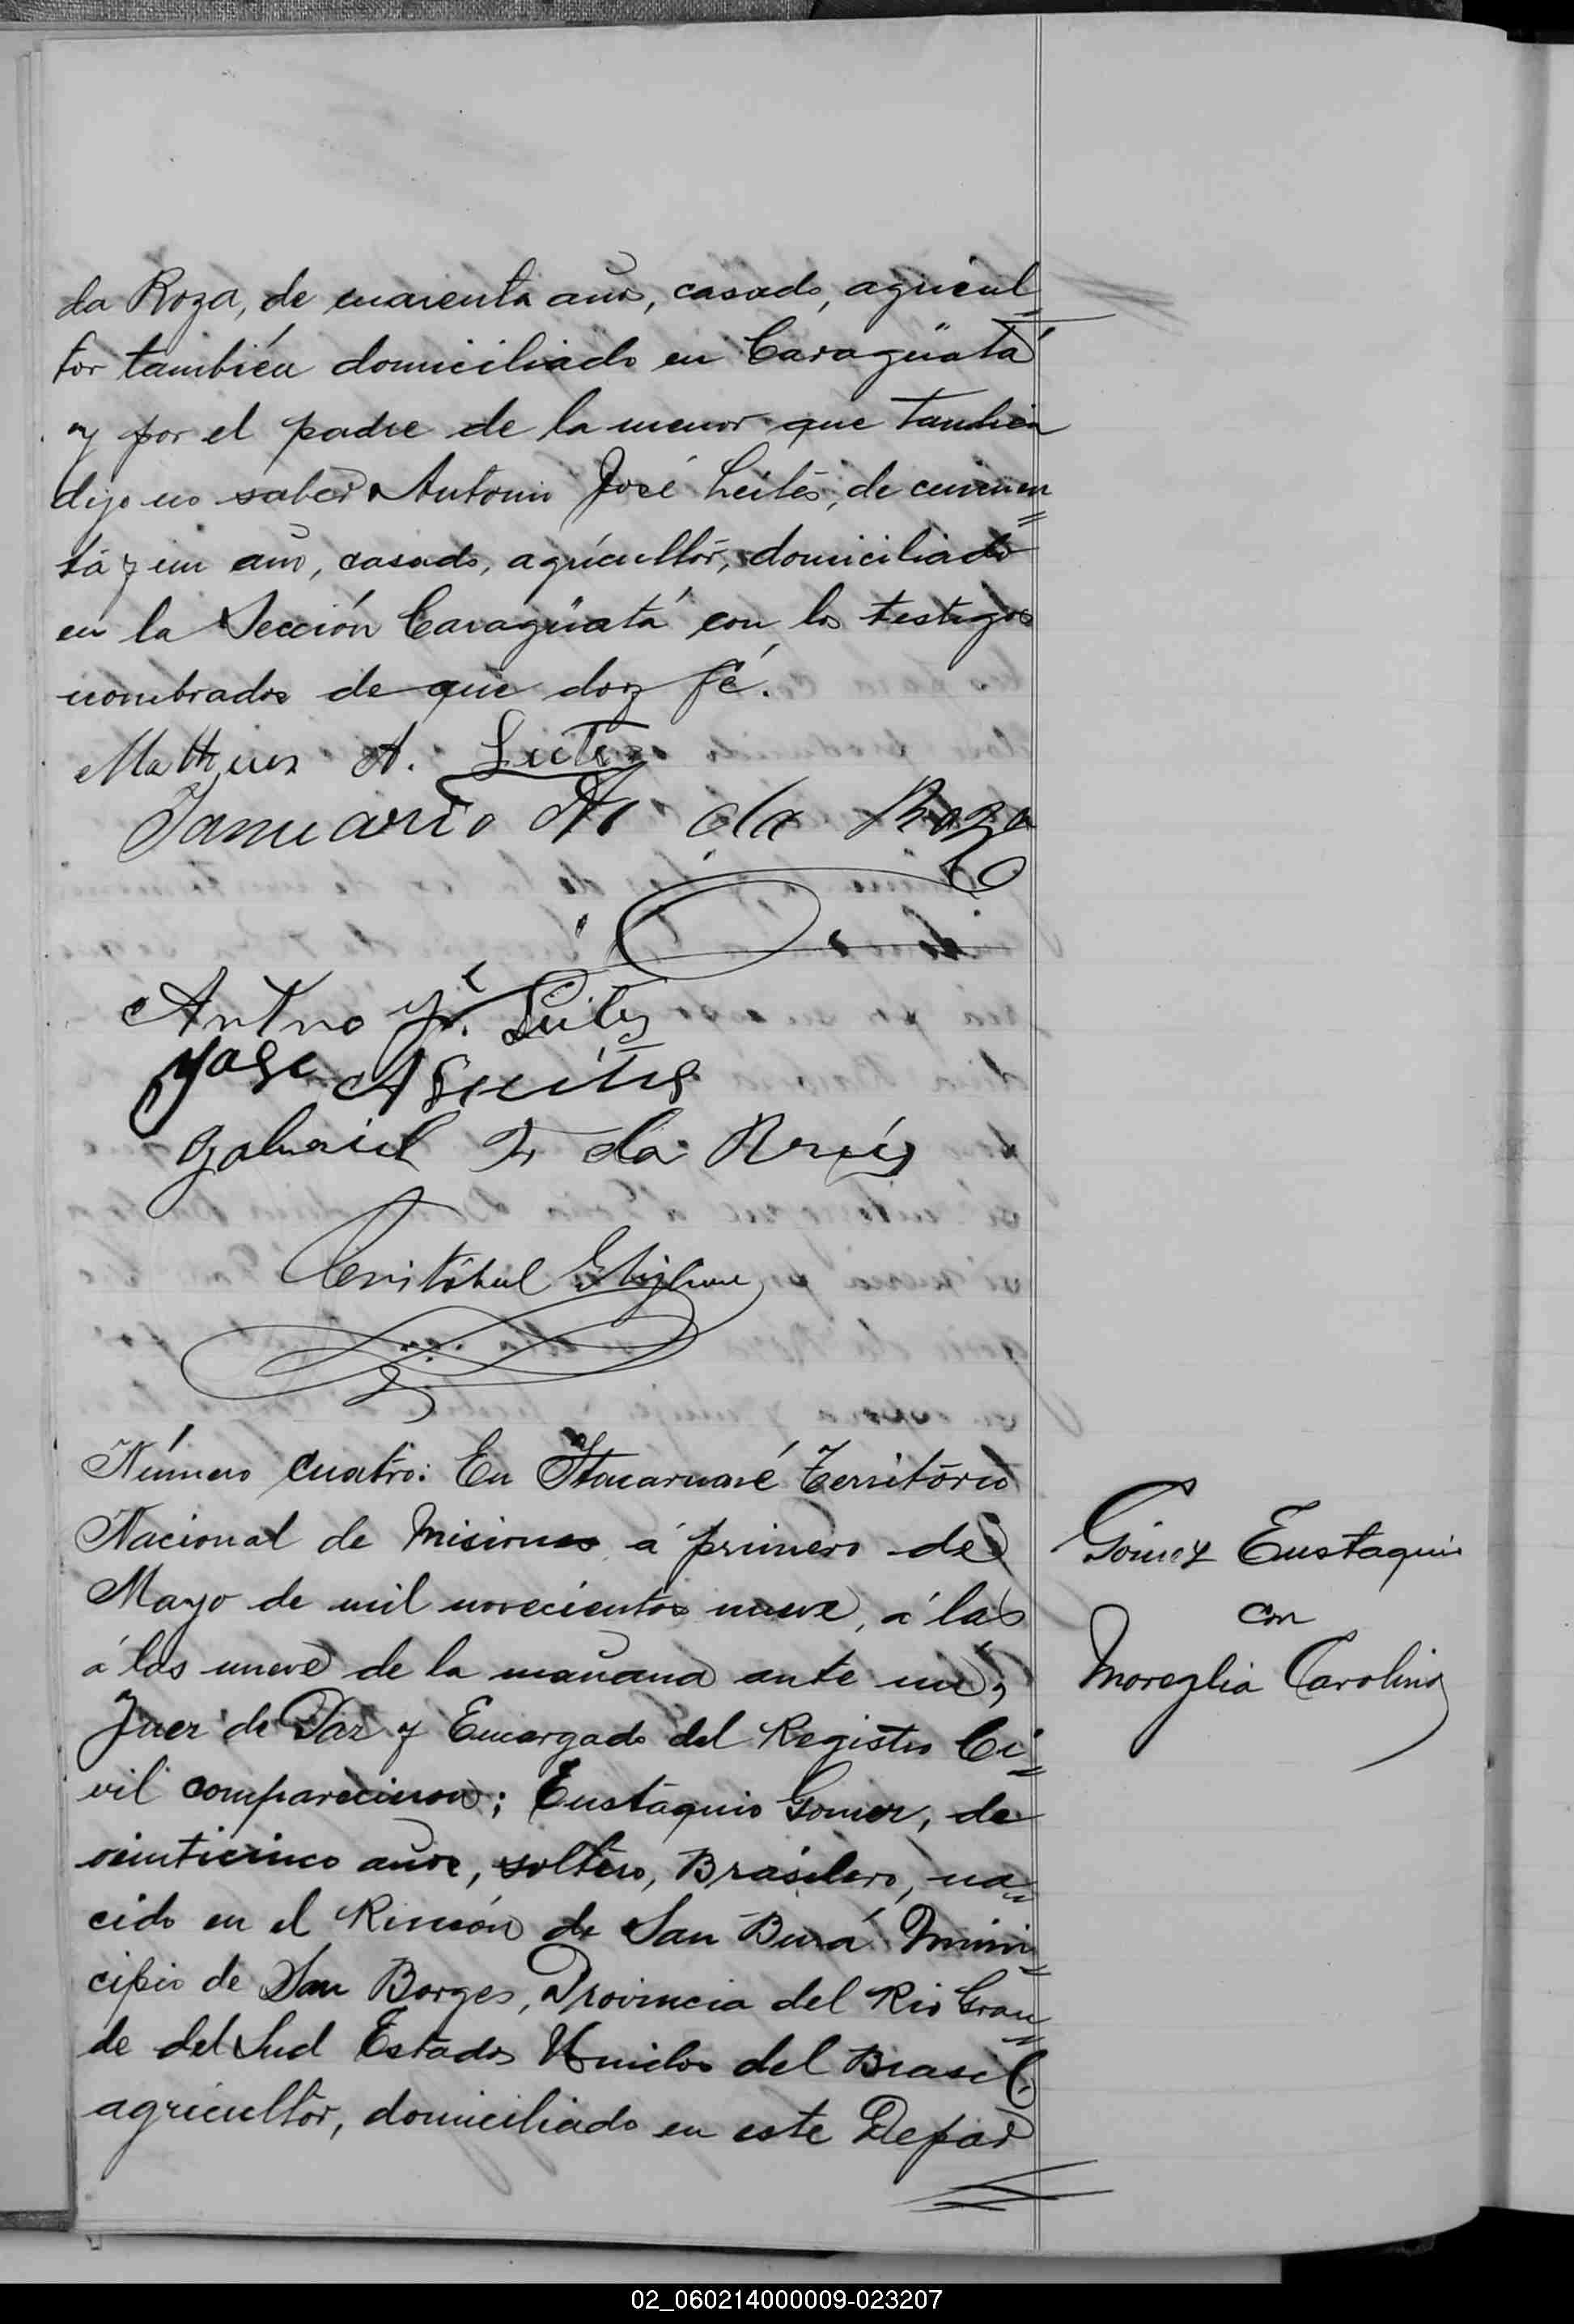 da Roza, de cuarenta años, casado, agricul
tor también domiciliado en Caragüatá
y por el padre de la menor que también
dijo no saber Antonio José Leites, de cincuen
ta y un año, casado, agricultor, domiciliado
en la Sección Caragüatá con los testigos
nombrados de que doy fé.
Matheus A. Leites
Januario A. da Roza
Antno J. Leites
Jose A Leites
Gabriel F. da
Cristóbal
Número cuatro: En Itacaruaré Territorio
Nacional de Misiones á primero de
Mayo de mil novecientos nueve, á las
á las nueve de la mañana ante mi,
Juez de Paz y Encargado del Registro Ci=
vil comparecieron; Eustaquio Gomez, de
veinticinco años, soltero, Brasilero, na=
cido en el Rincón de San Muni=
cipio de San Borges, Provincia del Rio Gran=
de del Sud Estados Unidos del Brasil,
agricultor, domiciliado en este Depar
Gomez Eustaquio
con
Moreglia Carolina
02_060214000009-023207